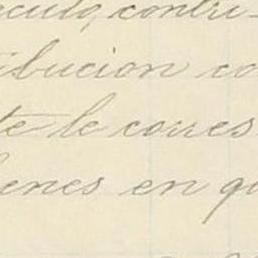 eculo, contri-
ibucion co
te le corres
enes en qu